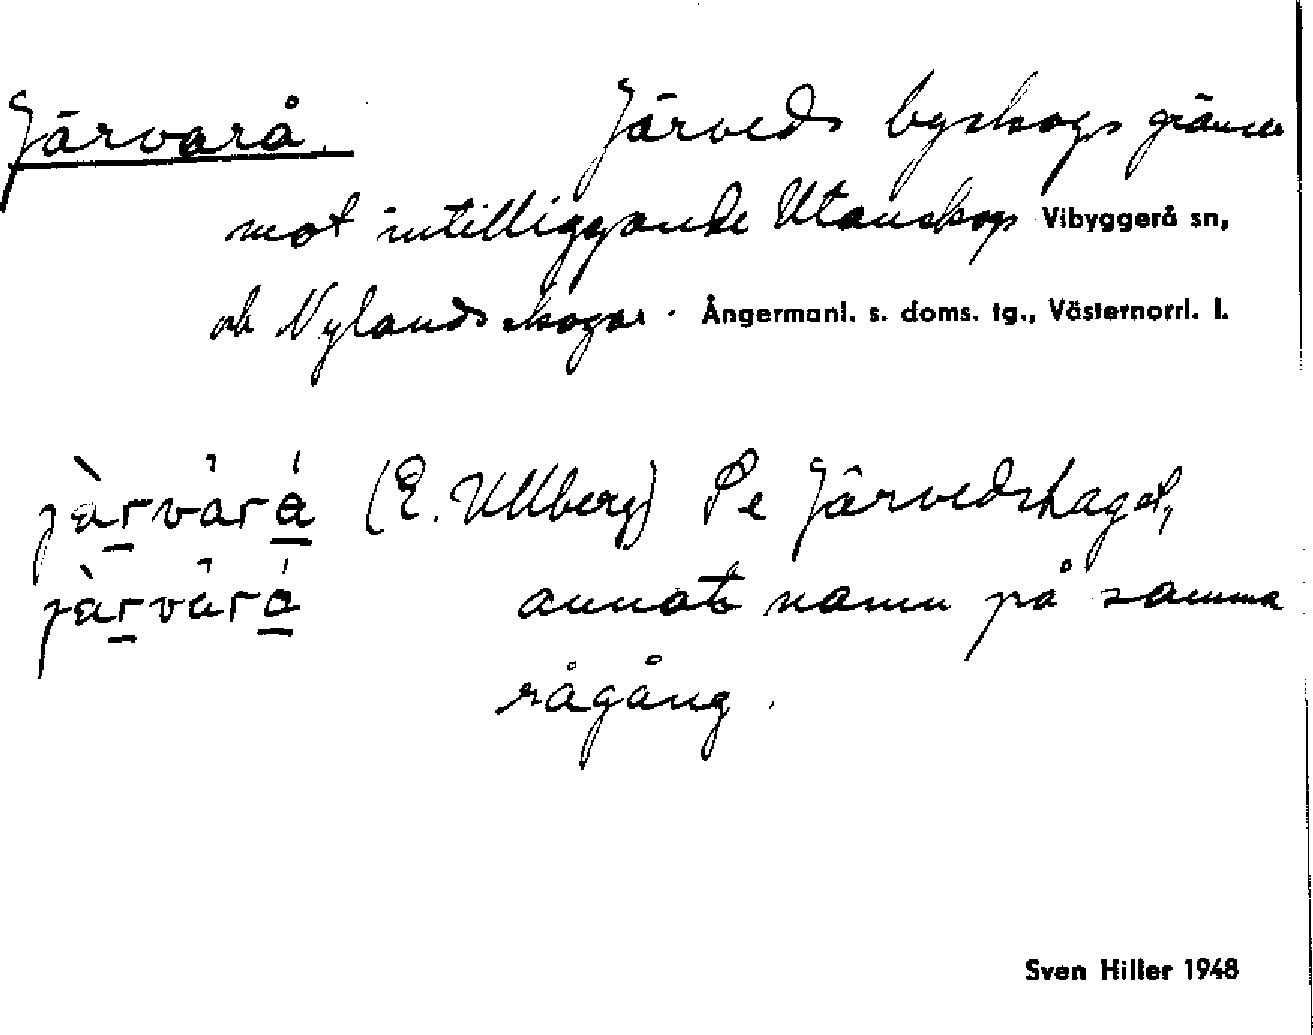 Järvarå. Järveds byskogs gräns
mot intilliggande Utanskogs Vibyggerå sn,
och Nylands skogar. Ångermanl. s. doms. tg., Västernorrl. l.
(E. Ullberg) Se Järvedshagel,
annat namn på samma
rågång.
Sven Hiller 1948